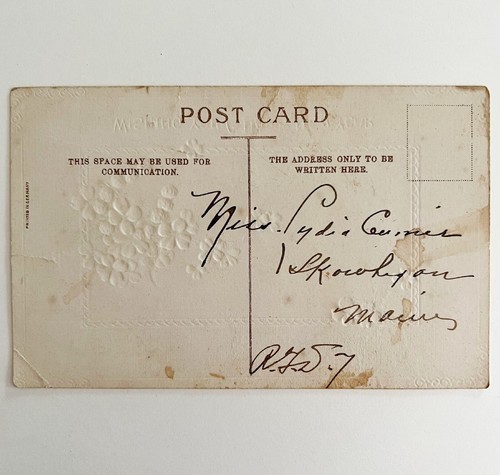 POST CARD
THIS SPACE MAY BE USED FOR
COMMUNICATION.
THE ADDRESS ONLY TO BE
WRITTEN HERE.
Miss. Lydia Currier
Skowhegan
Maine
R.F.D. 7